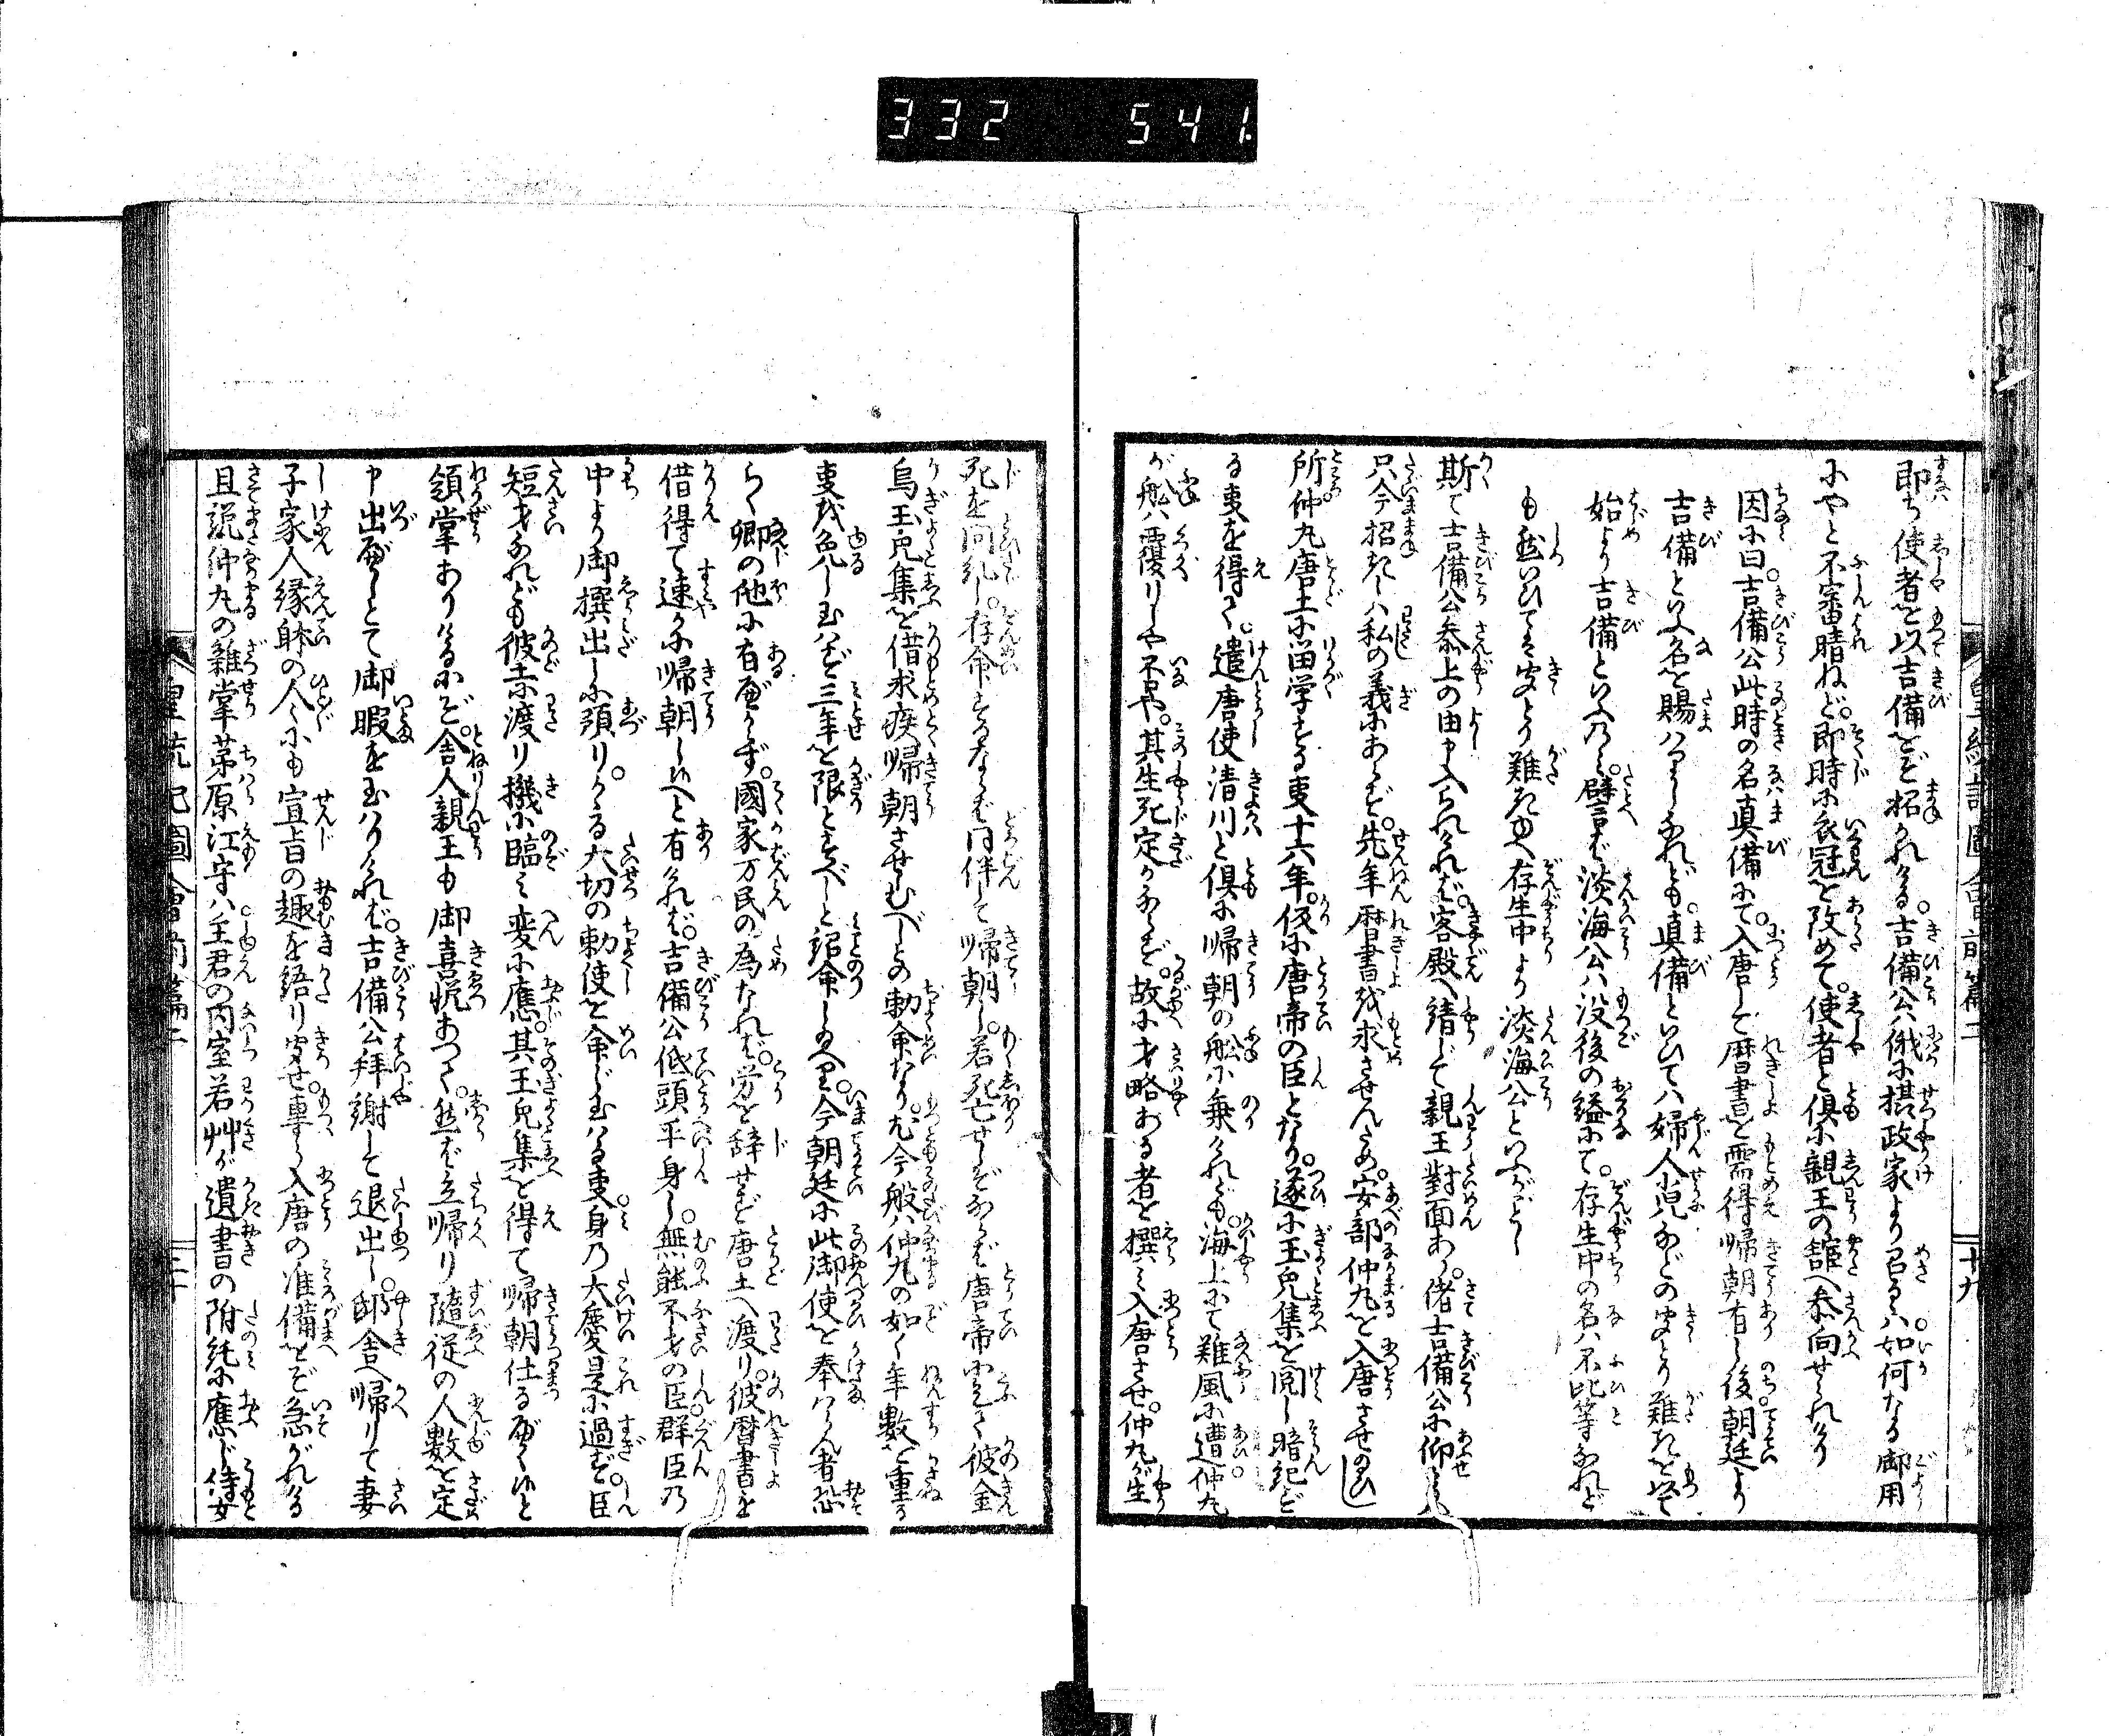 332 541.
即ち使者を以吉備をぞ招かれける吉備公俄に摂政家より召るゝは如何なる御用
にやと不審晴ねど即時に衣冠を改めて使者と倶に親王の舘へ参向せられけり
因に曰吉備公此時の名真備にて入唐して暦書を需得帰朝有し後朝廷より
吉備といふ名を賜はりしなれども真備といひては婦人小児などの聞とり難きを以て
始より吉備といふ乃し譬言ば淡海公は没後の謚にて存生中の名は不比等なれど
も然いひてを聞とり難きゆへ存生中より淡海公といふがごとし
斯て吉備公参上の由申入られければ客殿へ請じて親王對面あり偖吉備公に仰らく
只今招きしは私の義にあらず先年暦書を求させんため安部仲丸を入唐させのひし
所仲丸唐土に留学する事十六年仮に唐帝の臣となり遂に玉兎集を閲し暗記ど
る事を得て遣唐使清川と倶に帰朝の舩に乗ければも海上にて難風に遭仲丸
が舩は覆りしや不や其生死定かならず故に才略ある者を撰み入唐させ仲丸が生
死を問糺し存命するならば同伴して帰朝し若死亡せしならば唐帝に見て彼金
烏玉兎集を借求疾帰朝させむべしとの勅命なり尤今般は仲丸の如く年数を重る
事を免し玉はず三年を限とすべしと詔命しゆへ里今朝廷に此御使を奉はらん者恐
らく卿の他に有べからず國家万民の為なれば労を辞せず唐土へ渡り彼暦書を
借得て速かに帰朝しゆへと有ければ吉備公低頭平身し無能不才の臣群臣乃
中より御撰出しに預りかゝる大切の勅使を命じ玉はる事身乃大慶是に過ず臣
短才なれども彼土に渡り機に臨み変に應じ其玉兎集を得て帰朝仕るべくゆと
領掌ありけるにぞ舎人親王も御喜悦あつて然ば立帰り随従の人数を定
申出べしとて御暇を玉はりければ吉備公拝謝して退出し邸舎へ帰りて妻
子家人縁者の人々にも宣旨の趣を語り聞せ専ら入唐の准備をぞ急がれける
且説仲丸の雑掌茅原江守は主君の内室若艸が遺書の附託に應じ侍女
皇統記圖會前篇二
十九